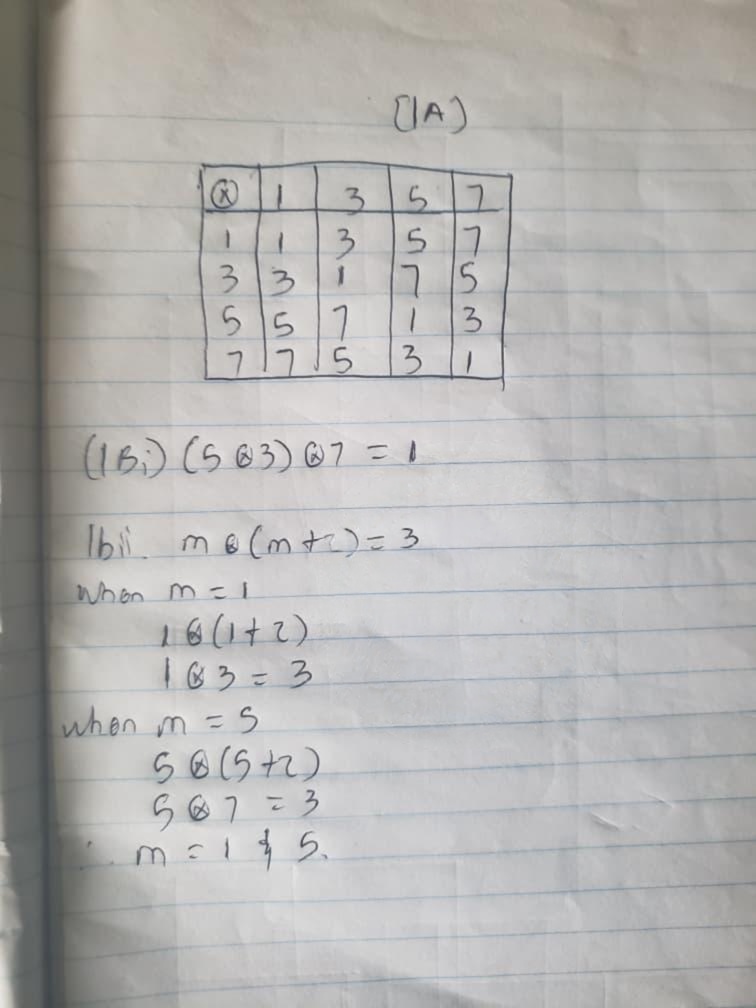 (1A)
⊗ 1 3 5 7
1 1 3 5 7
3 3 1 7 5
5 5 7 1 3
7 7 5 3 1
(1Bi) (5 ⊗ 3) ⊗ 7 = 1
1bii. m ⊗ (m + 2) = 3
when m = 1
1 ⊗ (1 + 2)
1 ⊗ 3 = 3
when m = 5
5 ⊗ (5 + 2)
5 ⊗ 7 = 3
∴ m = 1 & 5.